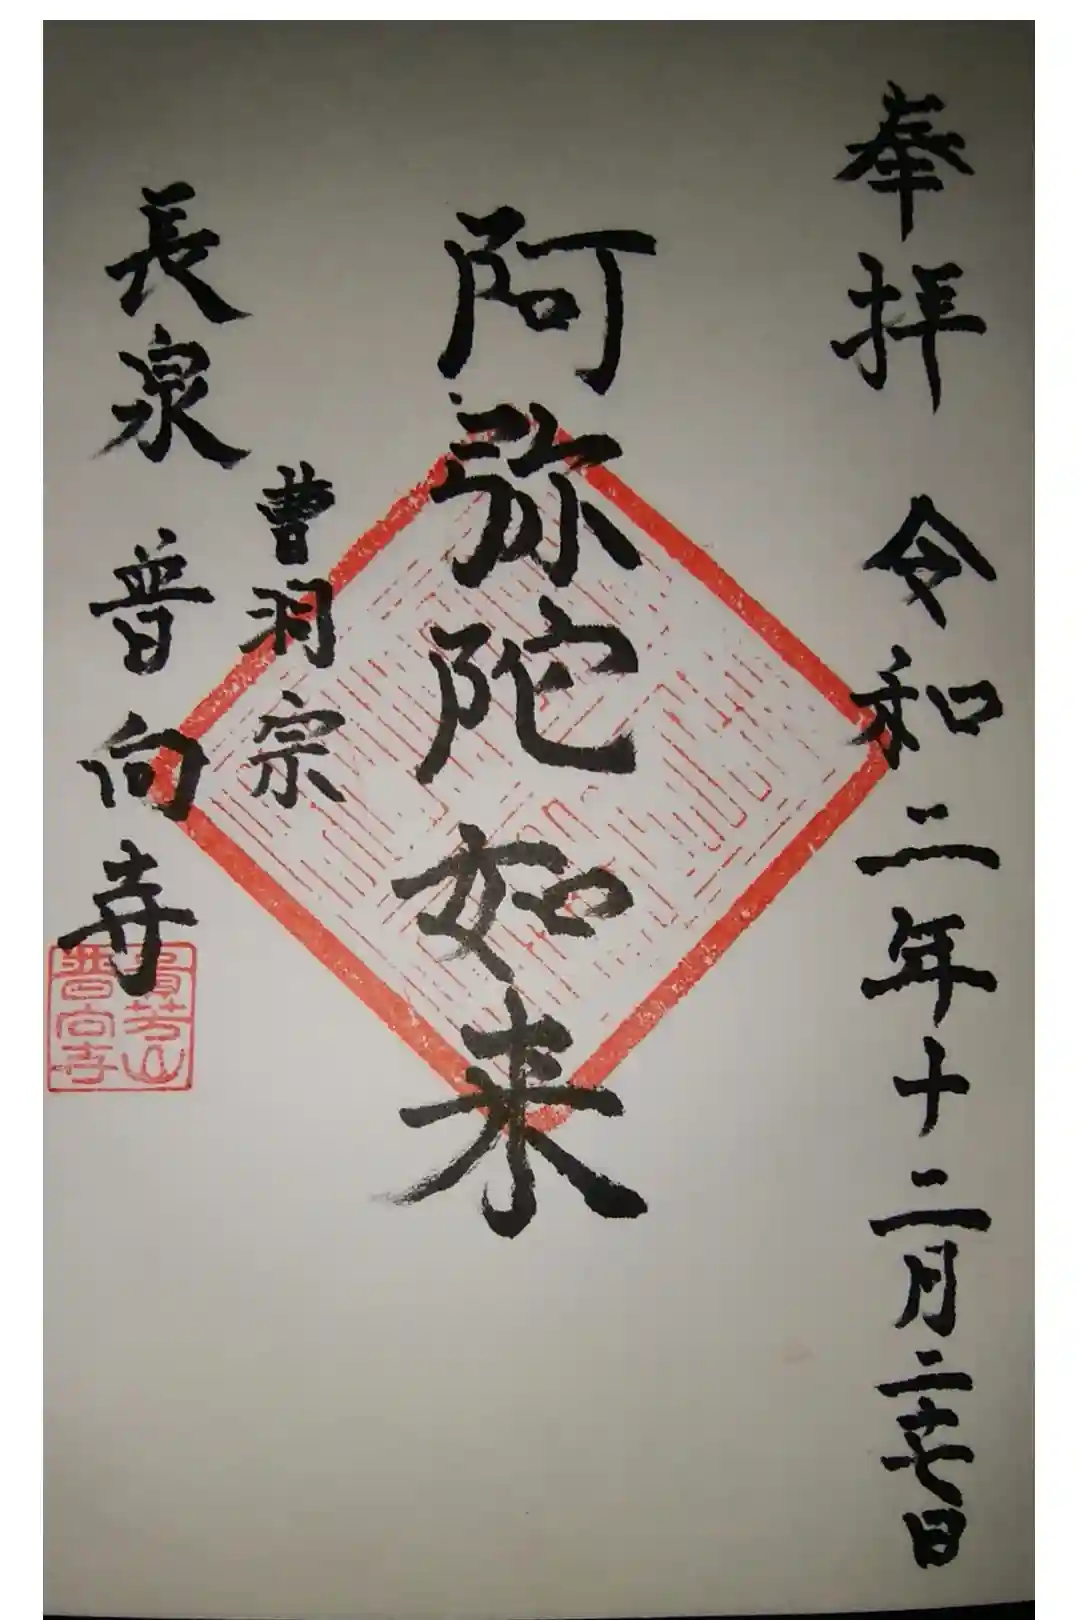 奉拝 令和二年十二月二十七日
阿弥陀如来
曹洞宗
長泉 普向寺
普向寺